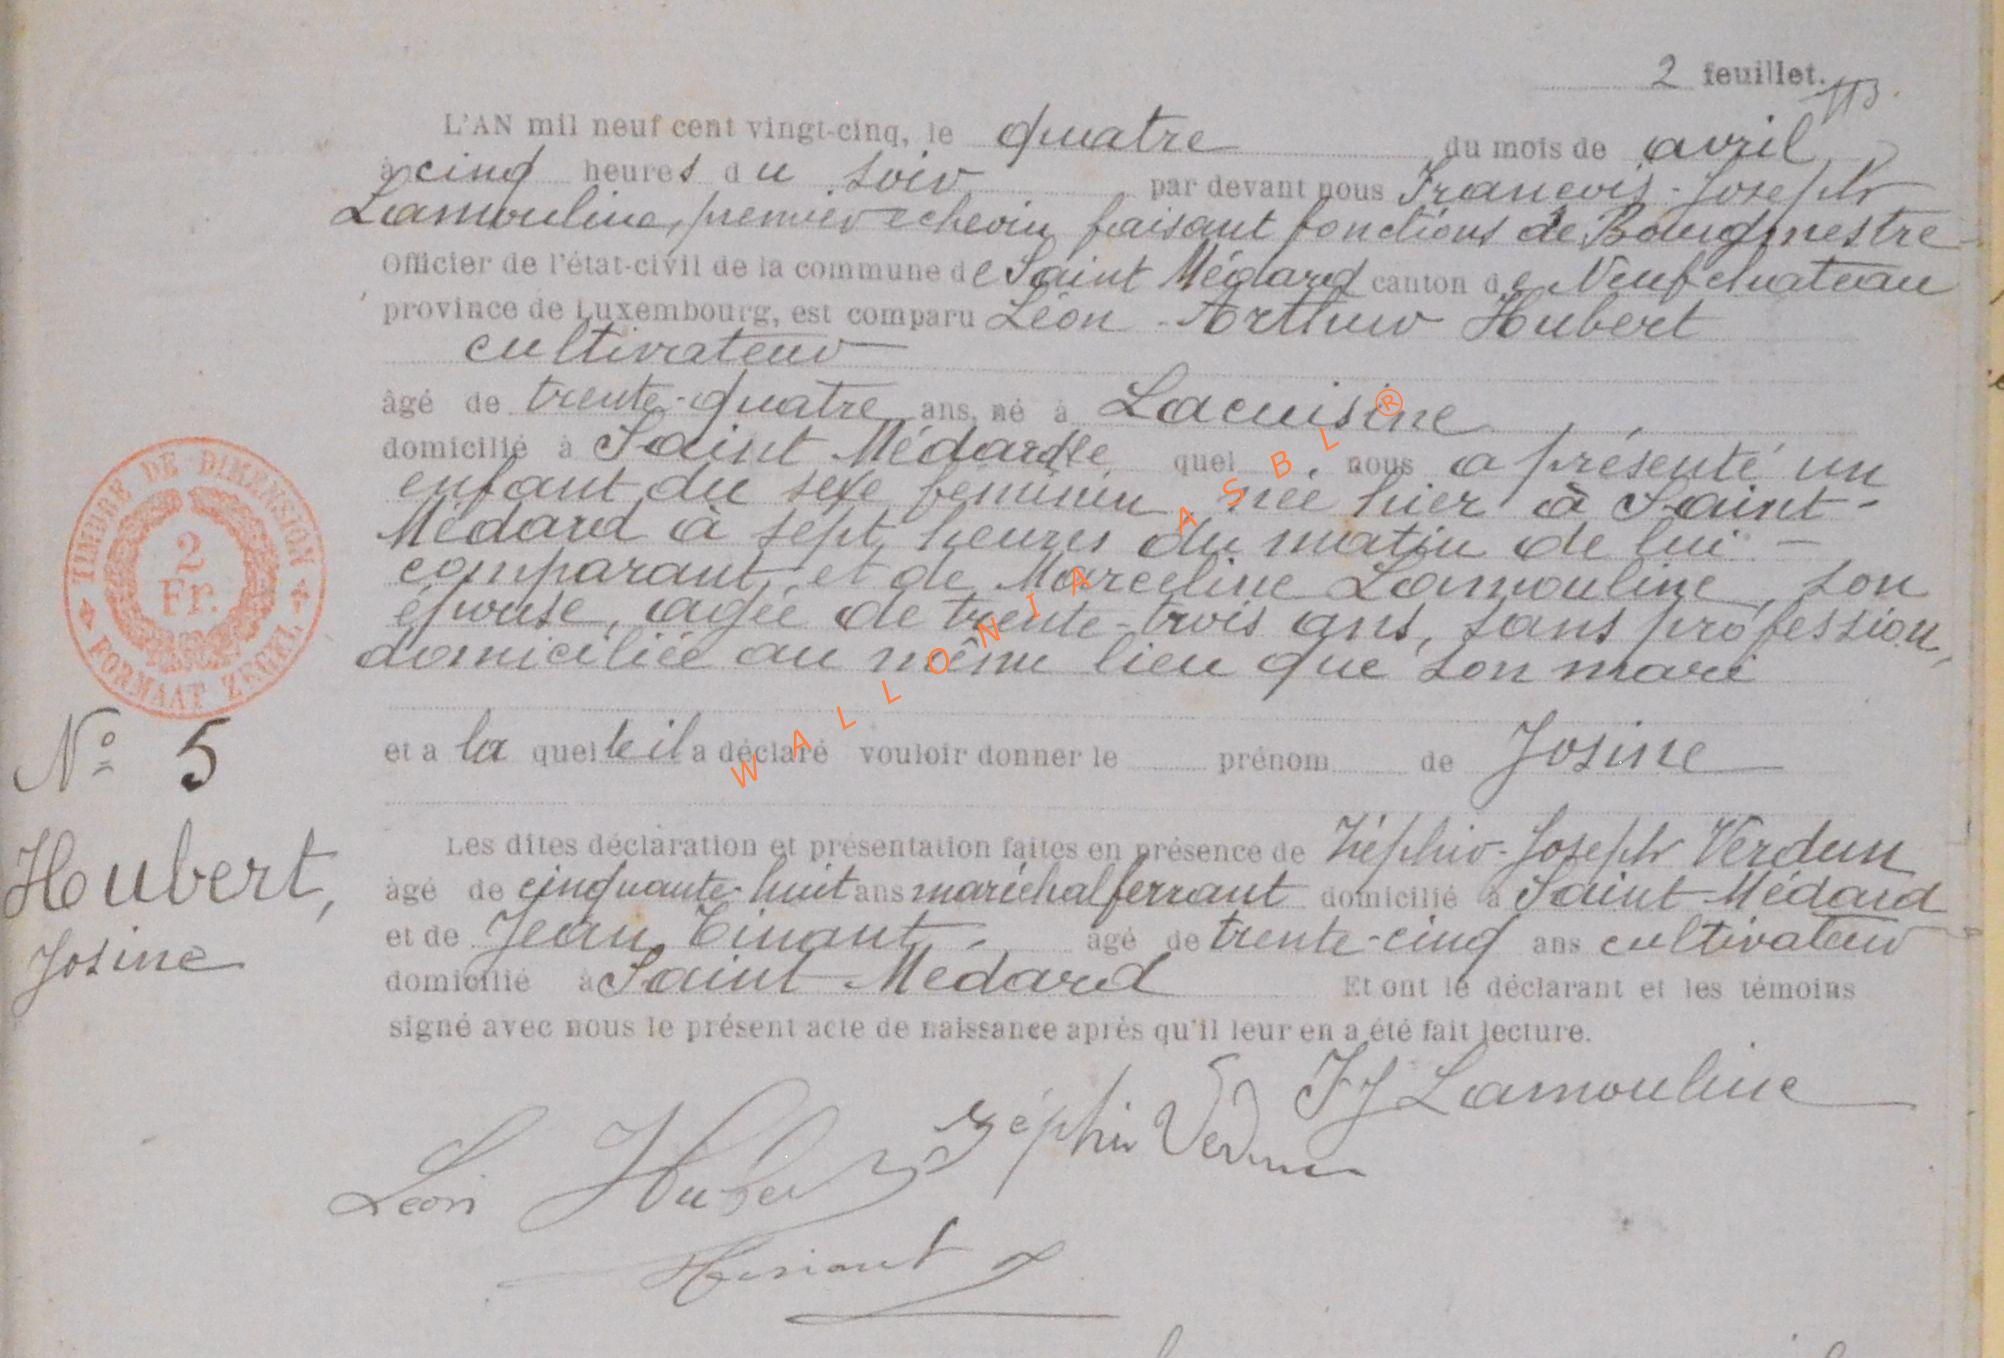 2 feuillet.
L'AN mil neuf cent vingt-cinq, le quatre du mois de avril
à cinq heures du soir par devant nous François-Joseph
Lamouline, premier echevin faisant fonctions de Bourgmestre
Officier de l'état-civil de la commune de Saint Médard canton de Neufchateau
province de Luxembourg, est comparu Léon-Arthur Hubert
cultivateur
âgé de trente-quatre ans, né à Lacuisine
domicilié à Saint Médard le quel nous a présenté un
enfant du sexe féminin née hier à Saint-
Médard à sept heures du matin de lui
comparant et de Marceline Lamouline, son
épouse, agée de trente-trois ans, sans profession,
domiciliée au même lieu que son mari
et a la quelle il a déclaré vouloir donner le prénom de Josine
Les dites déclaration et présentation faites en présence de Zéphir-Joseph Verdun
âgé de cinquante-huit ans maréchal ferrant domicilié à Saint-Médard
et de Jean Tinant âgé de trente-cinq ans cultivateur
domicilié à Saint-Médard Et ont le déclarant et les témoins
signé avec nous le présent acte de naissance après qu'il leur en a été fait lecture.
FJ Lamouline
Zéphir Verdun
Léon Hubert
TIMBRE DE DIMENSION
2
Fr.
FORMAAT ZEGEL
N° 5
Hubert,
Josine
WALLONIA ASBL ®